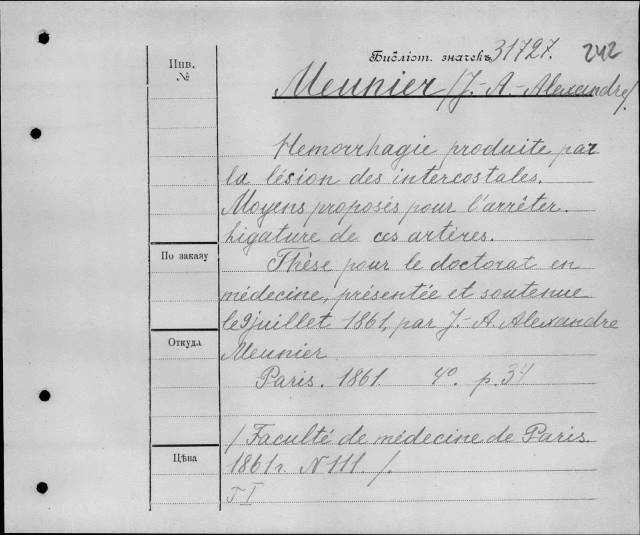 Инв.
№
Библіот. значекъ 31727. 242
Meunier /J.-A.-Alexandre/.
Hemorrhagie produite par
la lésion des intercostales.
Moyens proposés pour l'arrêter.
Ligature de ces artères.
По заказу
Thèse pour le doctorat en
médecine, présentée et soutenue
le 9 juillet 1861, par J.-A. Alexandre
Откуда
Meunier
Paris. 1861. 4°. p. 34
/ Faculté de médecine de Paris.
Цѣна
1861 г. N 111. /.